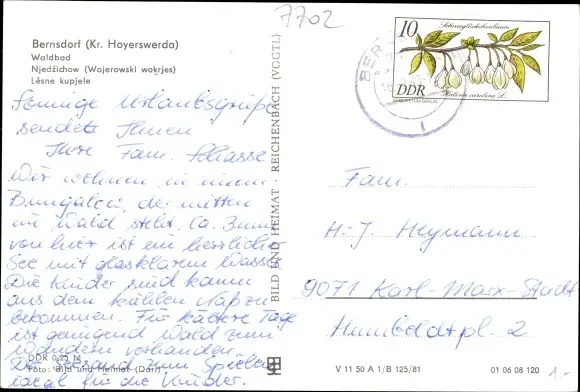 7702
Bernsdorf (Kr. Hoyerswerda)
Waldbad
Njedźichow (Wojerowski wokrjes)
Lěsne kupjele
Sonnige Urlaubsgrüße
sendet Ihnen
Ihre Fam. Schasse
Wir wohnen in einem
Bungalow, der mitten
im Wald steht. Ca. 3 min
von hier ist ein herrlicher
See mit glasklarem Wasser
Die Kinder sind kaum
aus dem kühlen Naß zu
bekommen. Für kältere Tage
ist genügend Wald zum
Wandern vorhanden.
Der Seesand zum Spielen
ideal für die Kinder.
DDR 0,25 M
Foto: Bild und Heimat (Dörr)
BILD UND HEIMAT REICHENBACH (VOGTL)
10
Schneeglöckchenbaum
DDR
Halesia carolina L.
ARBORETUM BERLIN
BER
Fam.
H.-J. Heymann
9071 Karl-Marx-Stadt
Humboldtpl. 2
V 11 50 A 1/B 125/81
01 06 08 120
1.-